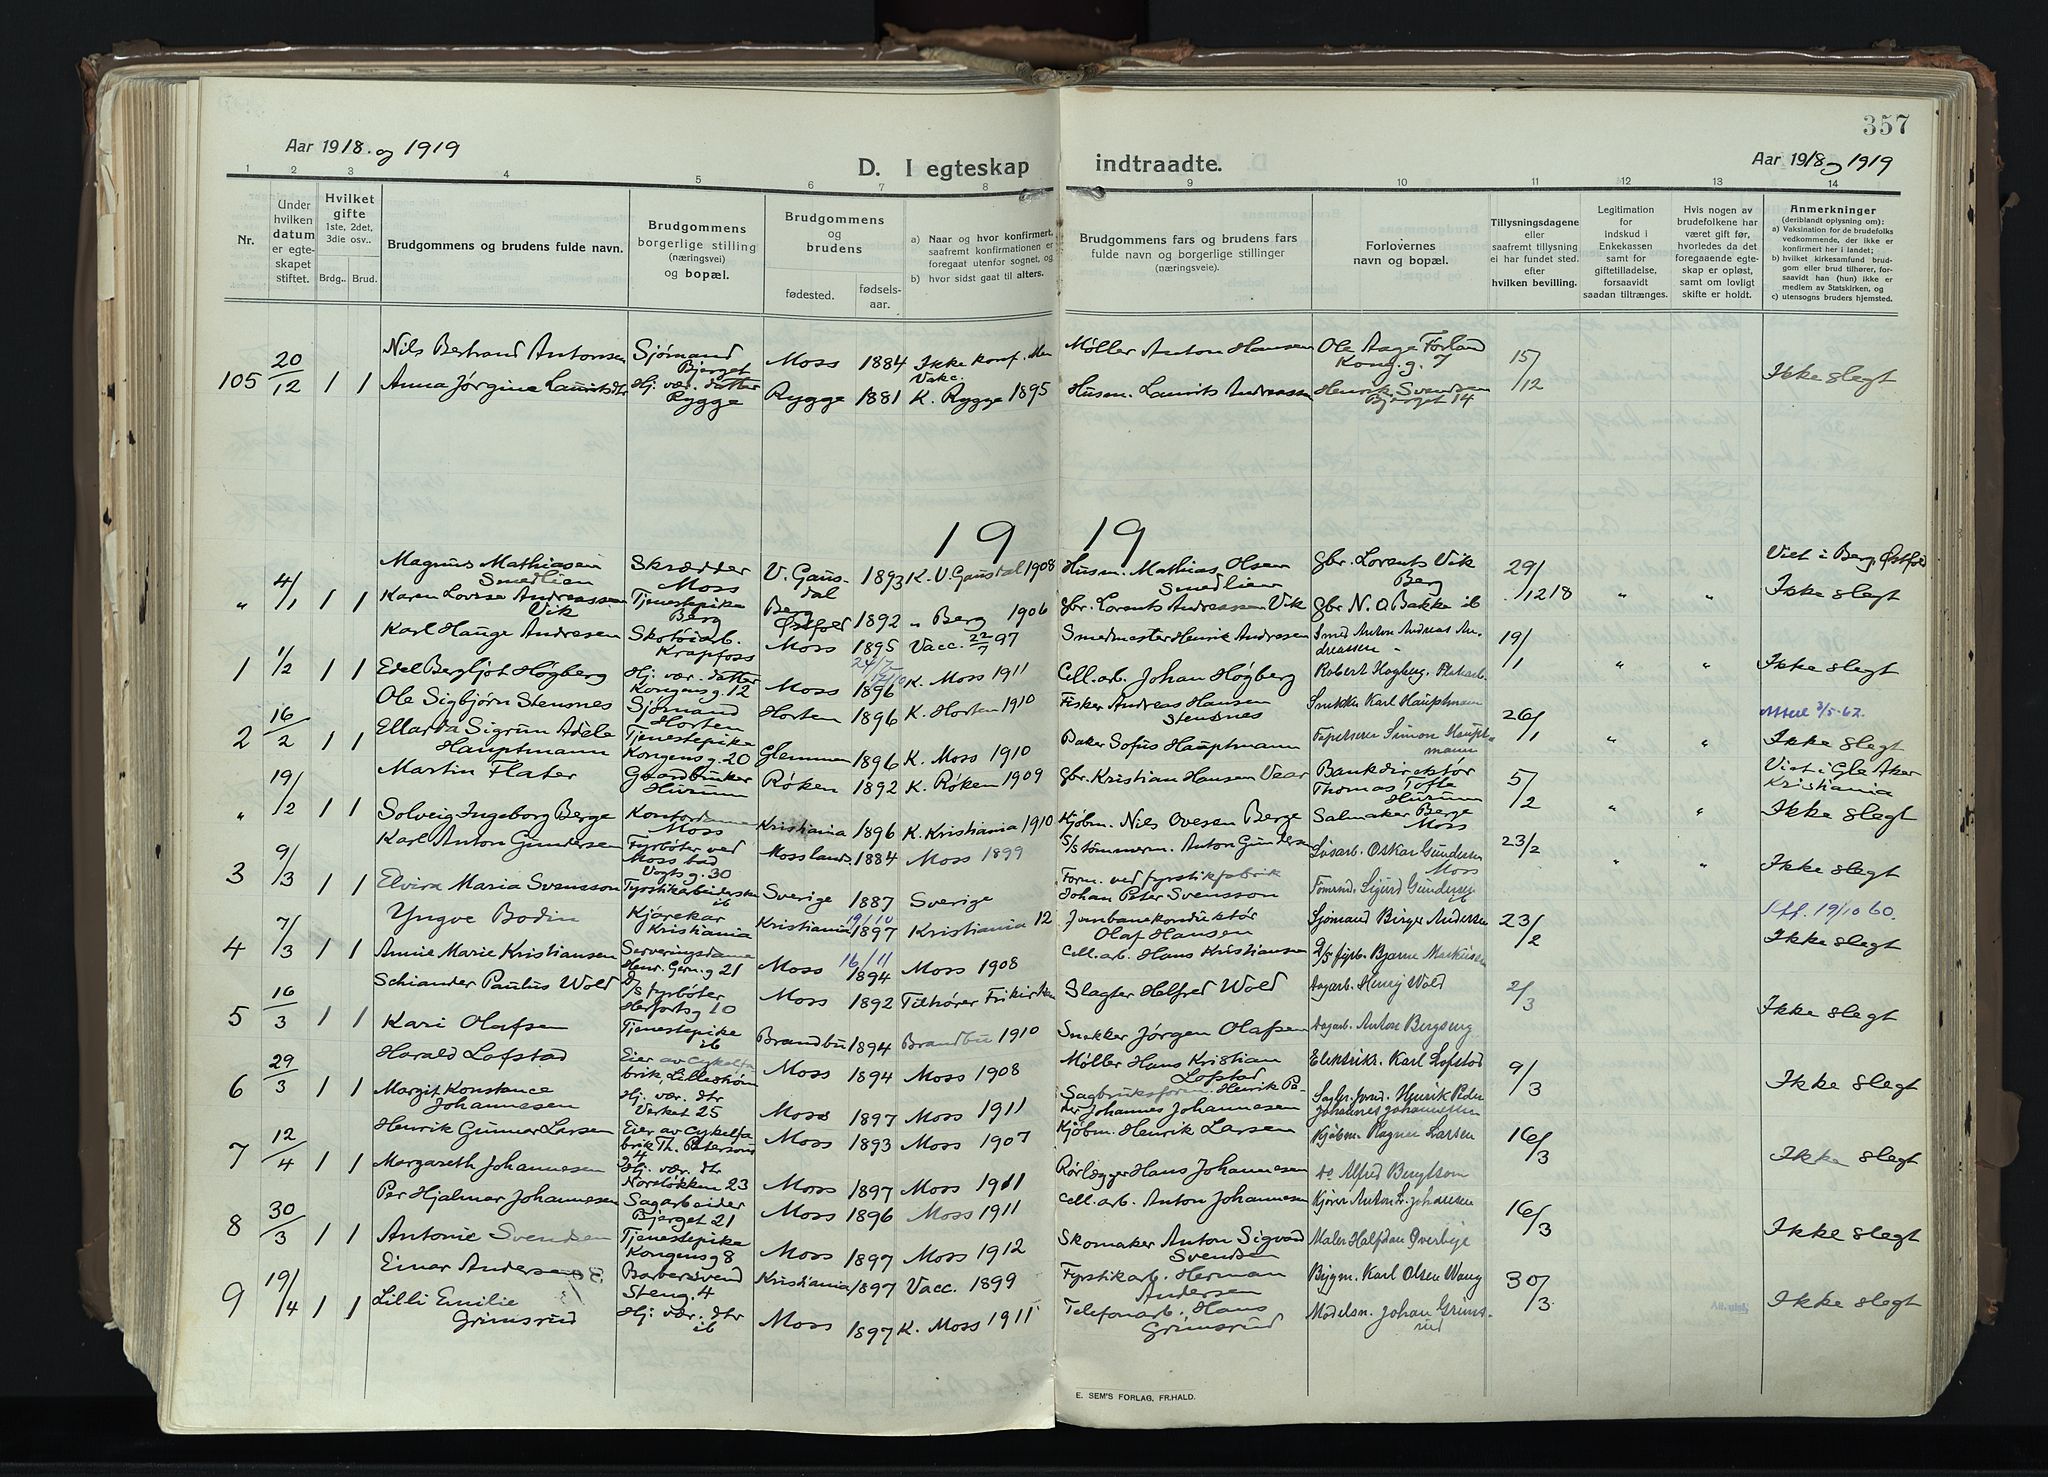 357
Aar 1918. og 1919
D. I egteskap indtraadte.
Aar 1918 og 1919
1 2 3 4 5 6 7 8 9 10 11 12 13 14
Nr.
Under hvilken datum er egteskapet stiftet.
Hvilket gifte 1ste, 2det, 3die osv..
Brdg.. Brud.
Brudgommens og brudens fulde navn.
Brudgommens borgerlige stilling (næringsvei) og bopæl.
Brudgommens og brudens
fødested.
fødselsaar.
a) Naar og hvor konfirmert, saafremt konfirmationen er foregaat utenfor sognet, og
b) hvor sidst gaat til alters.
Brudgommens fars og brudens fars fulde navn og borgerlige stillinger (næringsveie).
Forlovernes navn og bopæl.
Tillysningsdagene eller saafremt tillysning ei har fundet sted. efter hvilken bevilling.
Legitimation for Indskud i Enkekassen samt for giftetilladelse, forsaavidt saadan tiltrænges.
Hvis nogen av brudefolkene har været gift før, hvorledes da det foregaaende egteskap er opløst, samt om lovligt skifte er holdt.
Anmerkninger (deriblandt oplysning om):
a) Vaksination for de brudefolks vedkommende, der ikke er konfirmert her i landet;
b) hvilket kirkesamfund brudgom eller brud tilhører, forsaavidt han (hun) ikke er medlem av Statskirken, og
c) utensogns bruders hjemsted.
Nils Bertrand Antonsen Sjømand Bjerget Moss 1884 Ikke konf. Men Vakc. Møller Anton Hansen Ole Aage Forland Kong. g. 7 15/12
105 20/12 1 1 Anna Jørgine Lauritsdtr Hj. vær. datter Rygge Rygge 1881 K. Rygge 1895 Husm. Laurits Andreassen Henrik Svendsen Bjerget 14 Ikke slegt
19 19
Magnus Mathiasen Smedlien Skrædder Moss V. Gausdal 1893 K. V. Gausdal 1908 Husm. Mathias Olsen Smedlien Gbr. Lorents Vik Berg 29/12 18 Viet i Berg, Østfold
" 4/1 1 1 Karen Lovise Andreassen Vik Tjenestepike Berg Berg Østfold 1892 " Berg 1906 Gbr. Lorents Andreassen Vik Gbr N. O. Bakke ib " " Ikke slegt
Karl Hauge Andresen Skotøiarb. Krapfoss Moss 1895 Vacc. 22/7 97 Smedmester Henrik Andresen Smed Anton Andreas Andreassen 19/1
1 1/2 1 1 Edel Bergljot Høgberg Hj. vær. datter Kongens g. 12 Moss 1896 K. Moss 1911 Cell. arb. Johan Høgberg Robert Høgberg, " " Ikke slegt
Ole Sigbjørn Stensnes Sjømand Horten Horten 1896 K. Horten 1910 Fisker Andreas Hansen Stensnes Snekker Karl Hauptmann 26/1 3/5-62.
2 16/2 1 1 Marta Sigrun Adele Hauptmann Tjenestepike Kongens g. 20 Glemmen 1896 K. Moss 1910 Baker Sofus Hauptmann Tapetserer Simon Hauptmann " " Ikke slegt
Martin Flater Gaardbruker Hurum Røken 1892 K. Røken 1909 Gbr. Kristian Hansen Vear Bankdirektør Thomas Tofte Hurum 5/2 Viet i Gle Aker Kristiania
" 19/2 1 1 Solveig Ingeborg Berge Kontordame Moss Kristiania 1896 K. Kristiania 1910 Kjøbm. Nils Ovesen Berge Salmaker Berge Moss " " Ikke slegt
Karl Anton Gundersen Fyrbøter ved Moss bad Vogts g. 30 Moss lands. 1884 Moss 1899 S/s tømmerm. Anton Gundersen Løsarb. Oskar Gundersen Moss 23/2
3 9/3 1 1 Elvira Maria Svensson Fyrstikarbeiderske ib Sverige 1887 Sverige Form. ved fyrstikfabrik Johan Peter Svensson Sigurd Gundersen ib " " Ikke slegt
Yngve Bodin Kjørekar Kristiania Kristiania 19/10 1897 Kristiania 12 Jernbanekonduktør Olaf Hansen Sjømand Birger Andersen 23/2 19/10 60.
4 7/3 1 1 Annie Marie Kristiansen Serveringsdame Henr. Gern. g 21 Moss 16/11 1894 Moss 1908 Cell. arb. Hans Kristiansen D/s fyrb. Bjarne Markusen Ikke slegt
Schiander Paulus Wold D/s fyrbøter Herfortsg 10 Moss 1892 Tilhører Frikirken Slagter Helfred Wold Dagarb. Henry Wold 2/3
5 16/3 1 1 Kari Olafsen Tjenestepike ib Brandbu 1894 Brandbu 1910 Snekker Jørgen Olafsen Dagarb. Anton Bergseng Ikke slegt
Harald Lofstad Eier av cykelfabrik, Lillestrøm Moss 1894 Moss 1908 Møller Hans Kristian Lofstad Elektrik. Karl Lofstad 9/3
6 29/3 1 1 Margit Konstance Johannesen Hj. vær. dtr Verket 25 Moss 1897 Moss 1911 Sagbruksform. Henrik Peder Johannes Johannesen Henrik Peder Johannes Johannesen Ikke slegt
Henrik Gunnar Larsen Eier av cykelfabrik Th. Petersons g 4 Moss 1893 Moss 1907 Kjøbm. Henrik Larsen Kjøbm. Ragnar Larsen 16/3
7 12/4 1 1 Margareth Johannesen Hj. vær. dtr Norsløkken 23 Moss 1897 Moss 1911 Rørlegger Hans Johannesen do Alfred Bengtson Ikke slegt
Per Hjalmar Johannesen Sagarbeider Bjerget 21 Moss 1896 Moss 1911 Cell. arb. Anton Johannesen Kjører Anton Johansen 16/3
8 30/3 1 1 Antonie Svendsen Tjenestepike Kongens g 8 Moss 1897 Moss 1912 Skomaker Anton Sigvard Svendsen Maler Halfdan Øverbye Ikke slegt
Einar Andersen Barbersvend Steng. 4 Kristiania 1897 Vacc. 1899 Fyrstikarb. Herman Andersen Bygm. Karl Olsen Wang 30/3
9 19/4 1 1 Lilli Emilie Grimsrud Hj. vær. dtr ib Moss 1897 K. Moss 1911 Telefonarb. Hans Grimsrud Modelsn. Johan Grimsrud Ikke slegt
E. SEM'S FORLAG, FR.HALD.